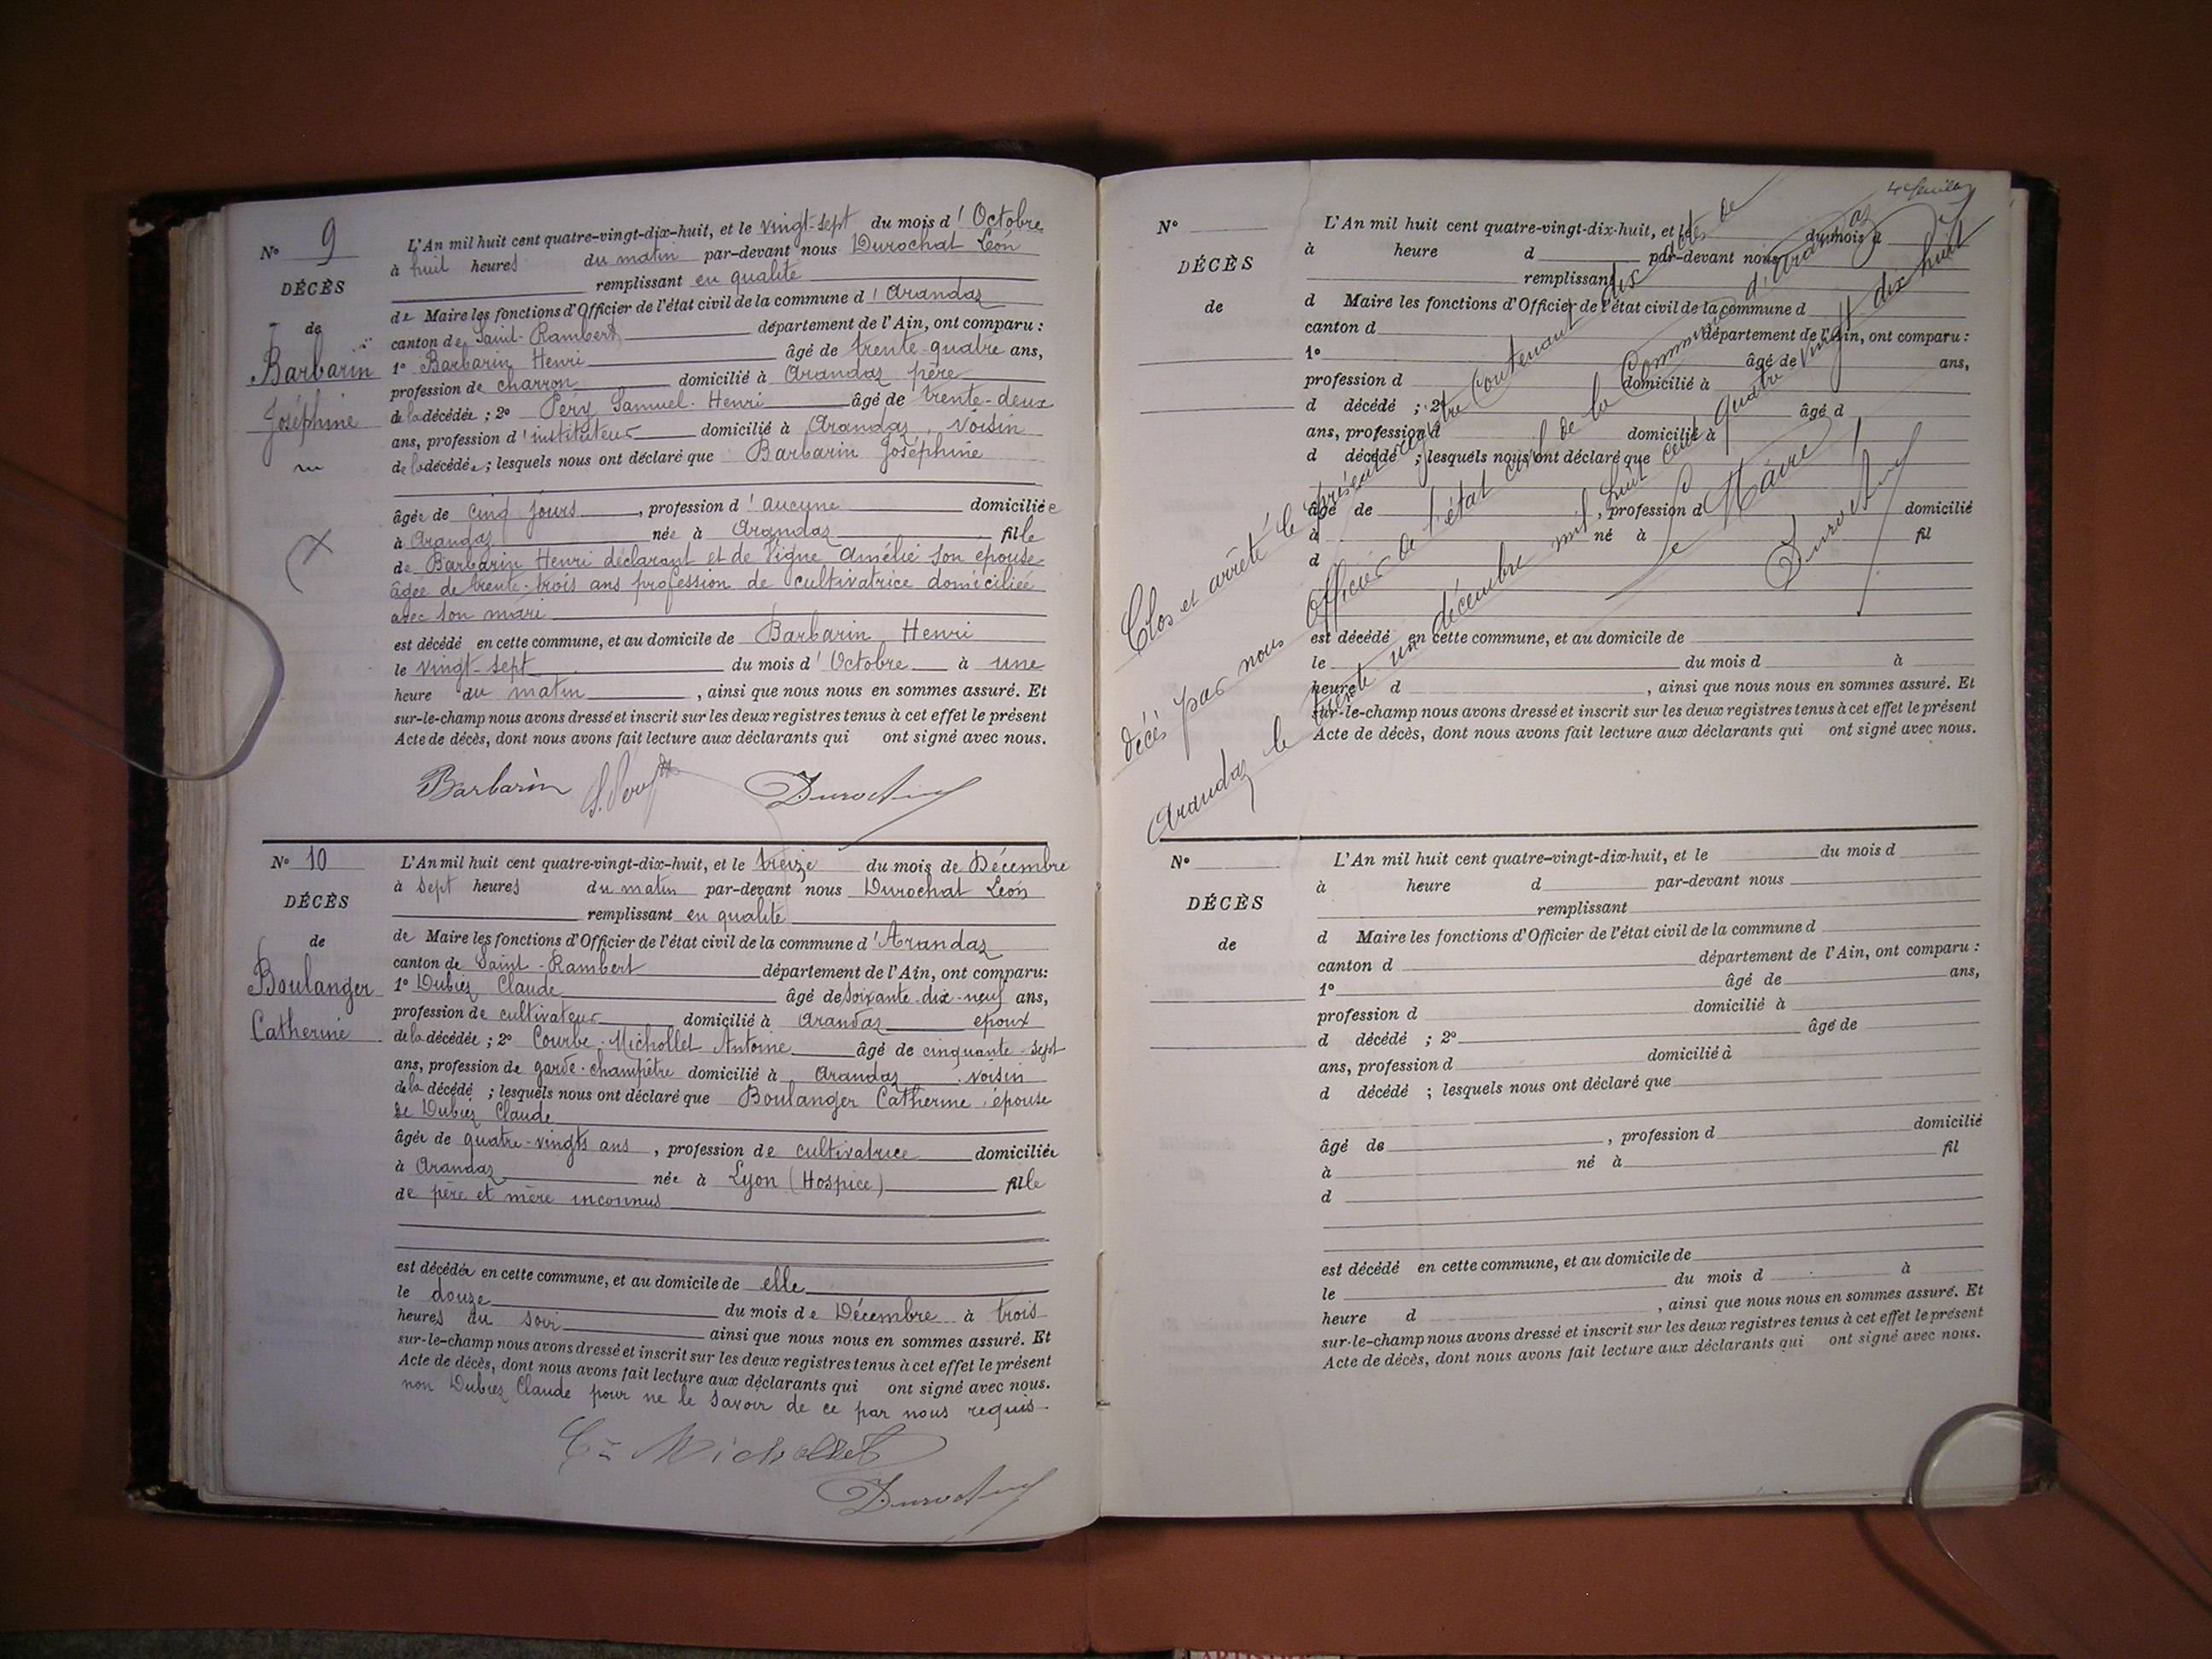 N° 9
DÉCÈS
de
Barbarin
Joséphine
L'An mil huit cent quatre-vingt-dix-huit, et le vingt-sept du mois d'Octobre
à huit heures du matin par-devant nous Durochat Léon
remplissant en qualité
de Maire les fonctions d'Officier de l'état civil de la commune d'Arandaz
canton de Saint-Rambert département de l'Ain, ont comparu :
1° Barbarin Henri âgé de trente-quatre ans,
profession de charron domicilié à Arandaz père
de la décédée ; 2° Péry Samuel-Henri âgé de trente-deux
ans, profession d'instituteur domicilié à Arandaz, voisin
de la décédée ; lesquels nous ont déclaré que Barbarin Joséphine
âgée de cinq jours, profession d'aucune domiciliée
à Arandaz née à Arandaz fille
de Barbarin Henri déclarant et de Vigne Amélie son épouse
âgée de trente-trois ans profession de cultivatrice domiciliée
avec son mari
est décédé en cette commune, et au domicile de Barbarin Henri
le vingt-sept du mois d'Octobre à une
heure du matin, ainsi que nous nous en sommes assuré. Et
sur-le-champ nous avons dressé et inscrit sur les deux registres tenus à cet effet le présent
Acte de décès, dont nous avons fait lecture aux déclarants qui ont signé avec nous.
Barbarin S. Pery Durochat
N° 10
DÉCÈS
de
Boulanger
Catherine
L'An mil huit cent quatre-vingt-dix-huit, et le treize du mois de Décembre
à sept heures du matin par-devant nous Durochat Léon
remplissant en qualité
de Maire les fonctions d'Officier de l'état civil de la commune d'Arandaz
canton de Saint-Rambert département de l'Ain, ont comparu:
1° Dubiez Claude âgé de soixante-dix-neuf ans,
profession de cultivateur domicilié à Arandaz époux
de la décédée ; 2° Courbe-Michollet Antoine âgé de cinquante-sept
ans, profession de garde-champêtre domicilié à Arandaz, voisin
de la décédé ; lesquels nous ont déclaré que Boulanger Catherine, épouse
de Dubiez Claude
âgée de quatre-vingts ans, profession de cultivatrice domiciliée
à Arandaz née à Lyon (Hospice) fille
de père et mère inconnus
est décédée en cette commune, et au domicile de elle
le douze du mois de Décembre à trois
heures du soir ainsi que nous nous en sommes assuré. Et
sur-le-champ nous avons dressé et inscrit sur les deux registres tenus à cet effet le présent
Acte de décès, dont nous avons fait lecture aux déclarants qui ont signé avec nous.
non Dubiez Claude pour ne le savoir de ce par nous requis
Michollet
Durochat
N°
DÉCÈS
de
L'An mil huit cent quatre-vingt-dix-huit, et le du mois d
à heure d par-devant nous
remplissant
d Maire les fonctions d'Officier de l'état civil de la commune d
canton d département de l'Ain, ont comparu :
1° âgé de ans,
profession d domicilié à
d décédé ; 2° âgé d
ans, profession d domicilié à
d décédé ; lesquels nous ont déclaré que
âgé de , profession d domicilié
à né à fil
d
est décédé en cette commune, et au domicile de
le du mois d à
heure d , ainsi que nous nous en sommes assuré. Et
sur-le-champ nous avons dressé et inscrit sur les deux registres tenus à cet effet le présent
Acte de décès, dont nous avons fait lecture aux déclarants qui ont signé avec nous.
Clos et arrêté le présent registre contenant dix actes de
décès par nous Officier de l'état civil de la Commune d'Arandaz
Arandaz le trente un décembre mil huit cent quatre vingt dix huit
Le Maire
Durochat
N°
DÉCÈS
de
L'An mil huit cent quatre-vingt-dix-huit, et le du mois d
à heure d par-devant nous
remplissant
d Maire les fonctions d'Officier de l'état civil de la commune d
canton d département de l'Ain, ont comparu :
1° âgé de ans,
profession d domicilié à
d décédé ; 2° âgé de
ans, profession d domicilié à
d décédé ; lesquels nous ont déclaré que
âgé de , profession d domicilié
à né à fil
d
est décédé en cette commune, et au domicile de
le du mois d à
heure d , ainsi que nous nous en sommes assuré. Et
sur-le-champ nous avons dressé et inscrit sur les deux registres tenus à cet effet le présent
Acte de décès, dont nous avons fait lecture aux déclarants qui ont signé avec nous.